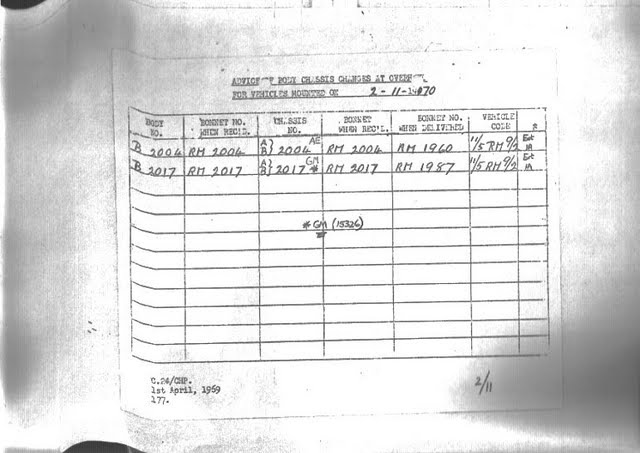 ADVICE OF BODY CHASSIS CHANGES AT OVERHAUL
FOR VEHICLES MOUNTED ON 2-11-1970
BODY NO. BONNET NO. WHEN REC'D. CHASSIS NO. BONNET WHEN REC'D. BONNET NO. WHEN DELIVERED VEHICLE CODE
B 2004 RM 2004 A} B} 2004 AE RM 2004 RM 1960 11/5 RM 9/2 Ext
B 2017 RM 2017 A} B} 2017 GM * RM 2017 RM 1987 11/5 RM 9/2 Ext
* GM (15326)
C.24/CHP.
1st April, 1969
177.
2/11